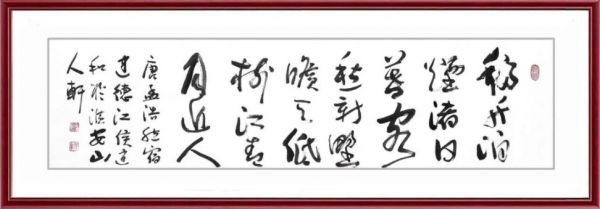 移舟泊
煙渚日
暮客
愁新野
曠天低
樹江清
月近人
唐孟浩然宿
建德江侯建
和於淮安山
人軒